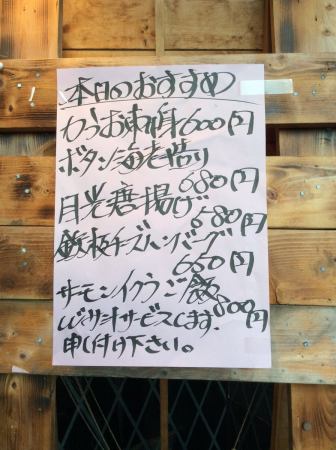 本日のおすすめ
かつお刺身600円
ボタン海老造り
680円
月光唐揚げ
580円
鉄板チーズハンバーグ
650円
サーモンイクラご飯
800円
みそ汁サービスします。
申し付け下さい。